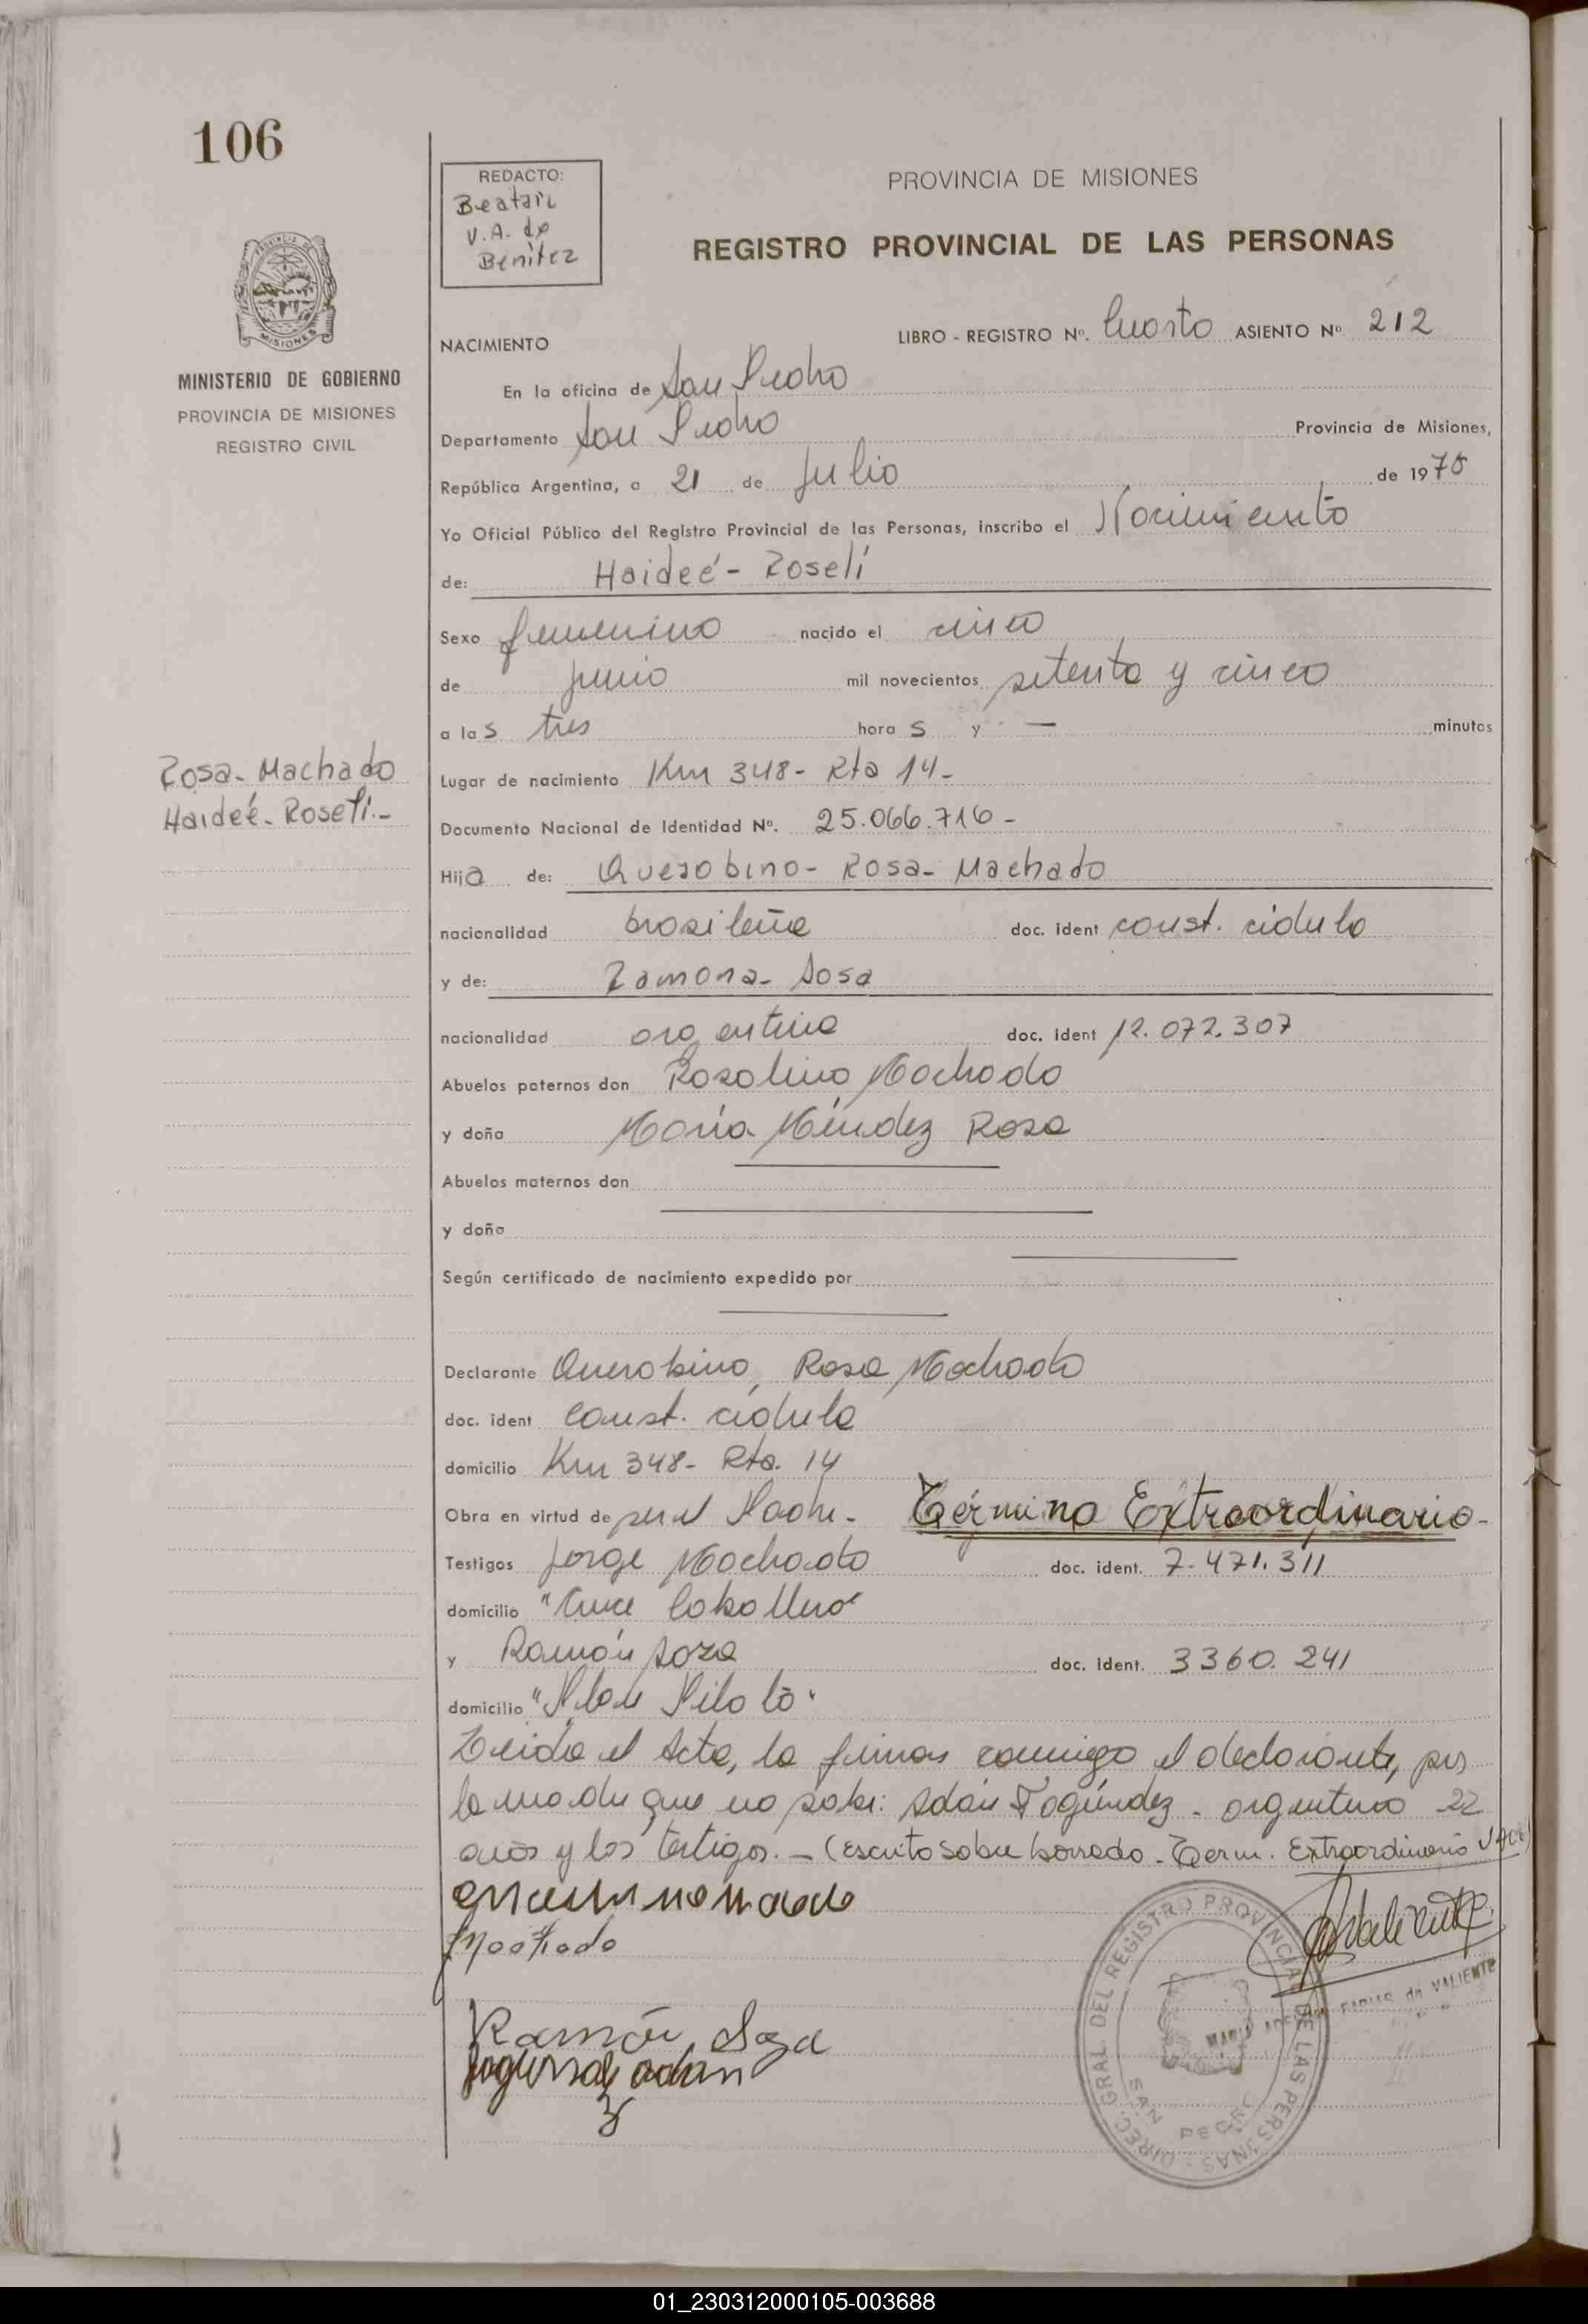 106
REDACTO:
Beatriz
V.A. de
Benitez
PROVINCIA DE MISIONES
REGISTRO PROVINCIAL DE LAS PERSONAS
PROVINCIA DE MISIONES
MINISTERIO DE GOBIERNO
PROVINCIA DE MISIONES
REGISTRO CIVIL
NACIMIENTO
LIBRO - REGISTRO Nº. Cuarto ASIENTO Nº. 212
En la oficina de San Pedro
Departamento San Pedro Provincia de Misiones,
República Argentina, a 21 de Julio de 1975
Yo Oficial Público del Registro Provincial de las Personas, inscribo el Nacimiento
de: Haideé - Roselí
Sexo femenino nacido el cinco
de junio mil novecientos setenta y cinco
a las tres horas y — minutos
Rosa - Machado
Haideé - Roselí.-
Lugar de nacimiento Km 348 - Rta 14 -
Documento Nacional de Identidad Nº. 25.066.716 -
Hija de: Querobino - Rosa - Machado
nacionalidad brasileña doc. ident const. cédula
y de: Ramona - Sosa
nacionalidad argentina doc. ident 12.072.307
Abuelos paternos don Rosalino Machado
y doña María Méndez Rosa
Abuelos maternos don
y doña
Según certificado de nacimiento expedido por
Declarante Querobino, Rosa Machado
doc. ident const. cédula
domicilio Km 348 - Rta. 14
Obra en virtud de ser el Padre - Término Extraordinario -
Testigos Jorge Machado doc. ident. 7.471.311
domicilio "Cruce Caballero"
y Ramón Soza doc. ident. 3360.241
domicilio "Plan Piloto"
Leída el Acta, la firman conmigo el declarante, por
la madre que no sabe: Adán Fagúndez - argentino 22
años y los testigos. - (Escrito sobre borrado - Term. Extraordinario Vale)
Machado
Ramón Soza
Fagundez adan
DIREC. GRAL. DEL REGISTRO PROVINCIAL DE LAS PERSONAS
SAN PEDRO
MARIA FARIAS de VALIENTE
01_230312000105-003688